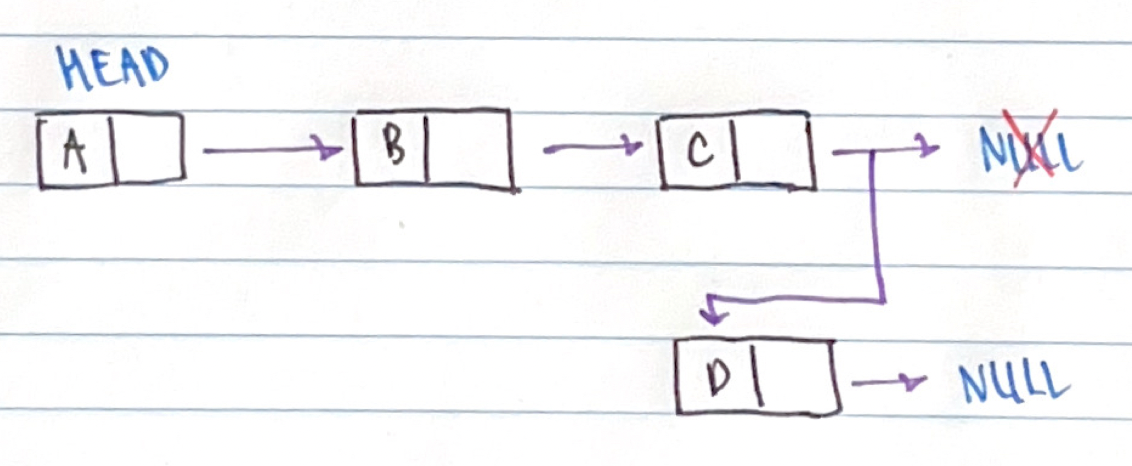 HEAD
A B C NULL
D NULL